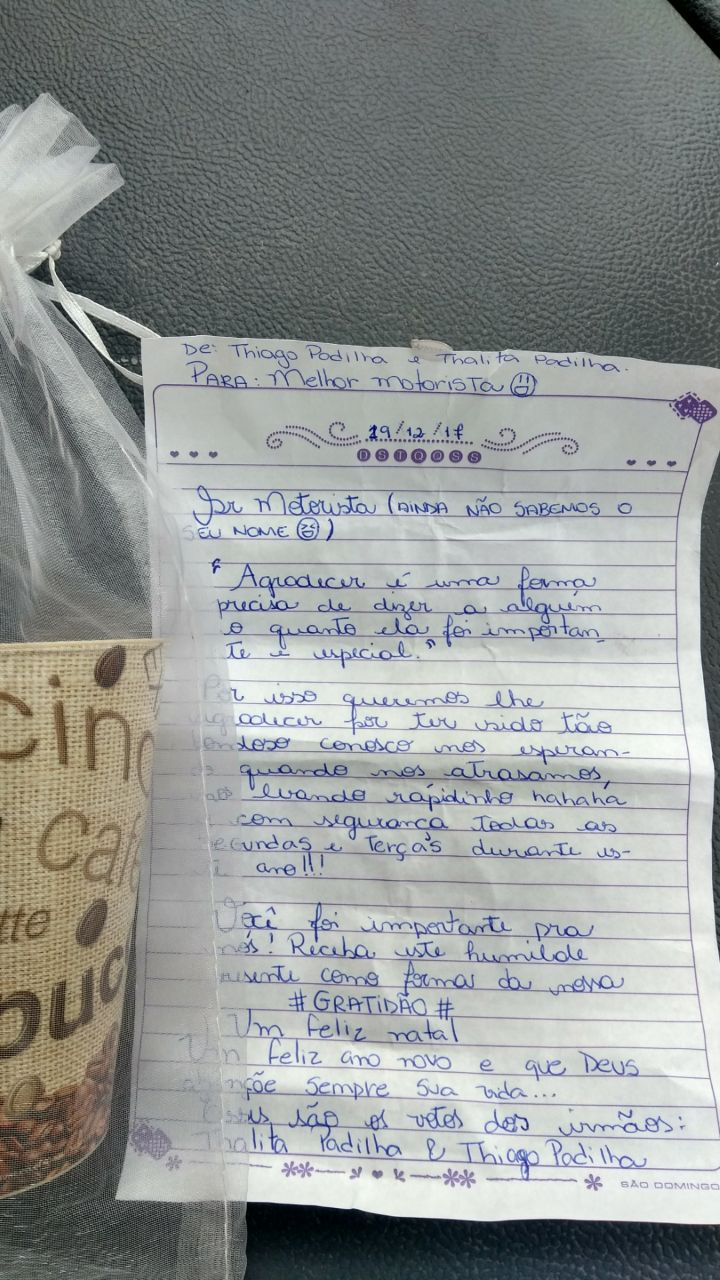 De: Thiago Padilha e Thalita Padilha.
PARA: Melhor motorista
19/12/17
DSTQQSS
Sr Motorista (AINDA NÃO SABEMOS O
SEU NOME )
"Agradecer é uma forma
precisa de dizer a alguém
o quanto ela foi importan_
te e especial."
Por isso queremos lhe
agradecer por ter sido tão
bondoso conosco nos esperan-
do quando nos atrasamos,
nos levando rápidinho hahaha
e com segurança todas as
segundas e terças durante es-
te ano!!!
Você foi importante pra
nós! Receba este humilde
presente como forma da nossa
#GRATIDÃO#
Um feliz natal
Um feliz ano novo e que Deus
abençõe sempre sua vida...
Esses são os votos dos irmãos:
Thalita Padilha & Thiago Padilha
SÃO DOMINGO
cino
café
tte
puc